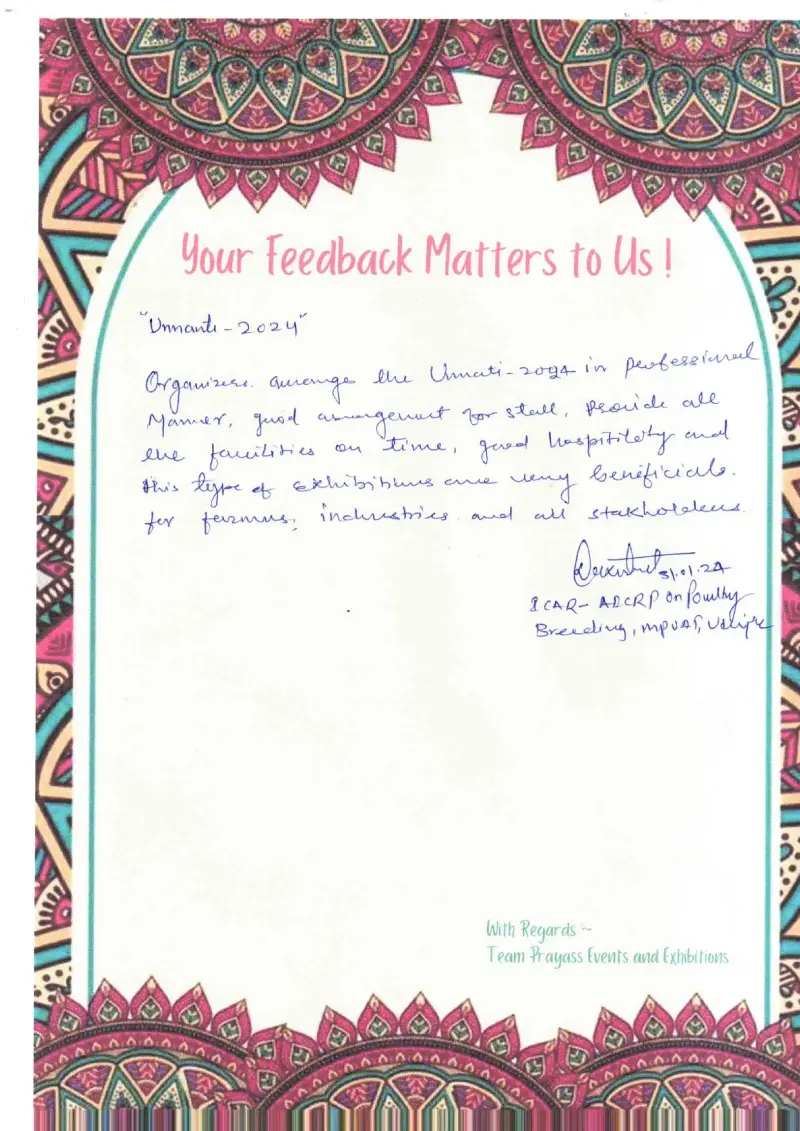 Your Feedback Matters to Us !
"Unnanti - 2024"
Organizers arrange the Unnati-2024 in professional
Manner, good arrangement for stall, Provide all
the facilities on time, good hospitility and
this type of exhibitions are very beneficials.
for farmers, industries and all stakholders.
31.01.24
ICAR- AICRP on Poultry
Breeding, MPUAT, Udaipur
With Regards ~
Team Prayass Events and Exhibitions